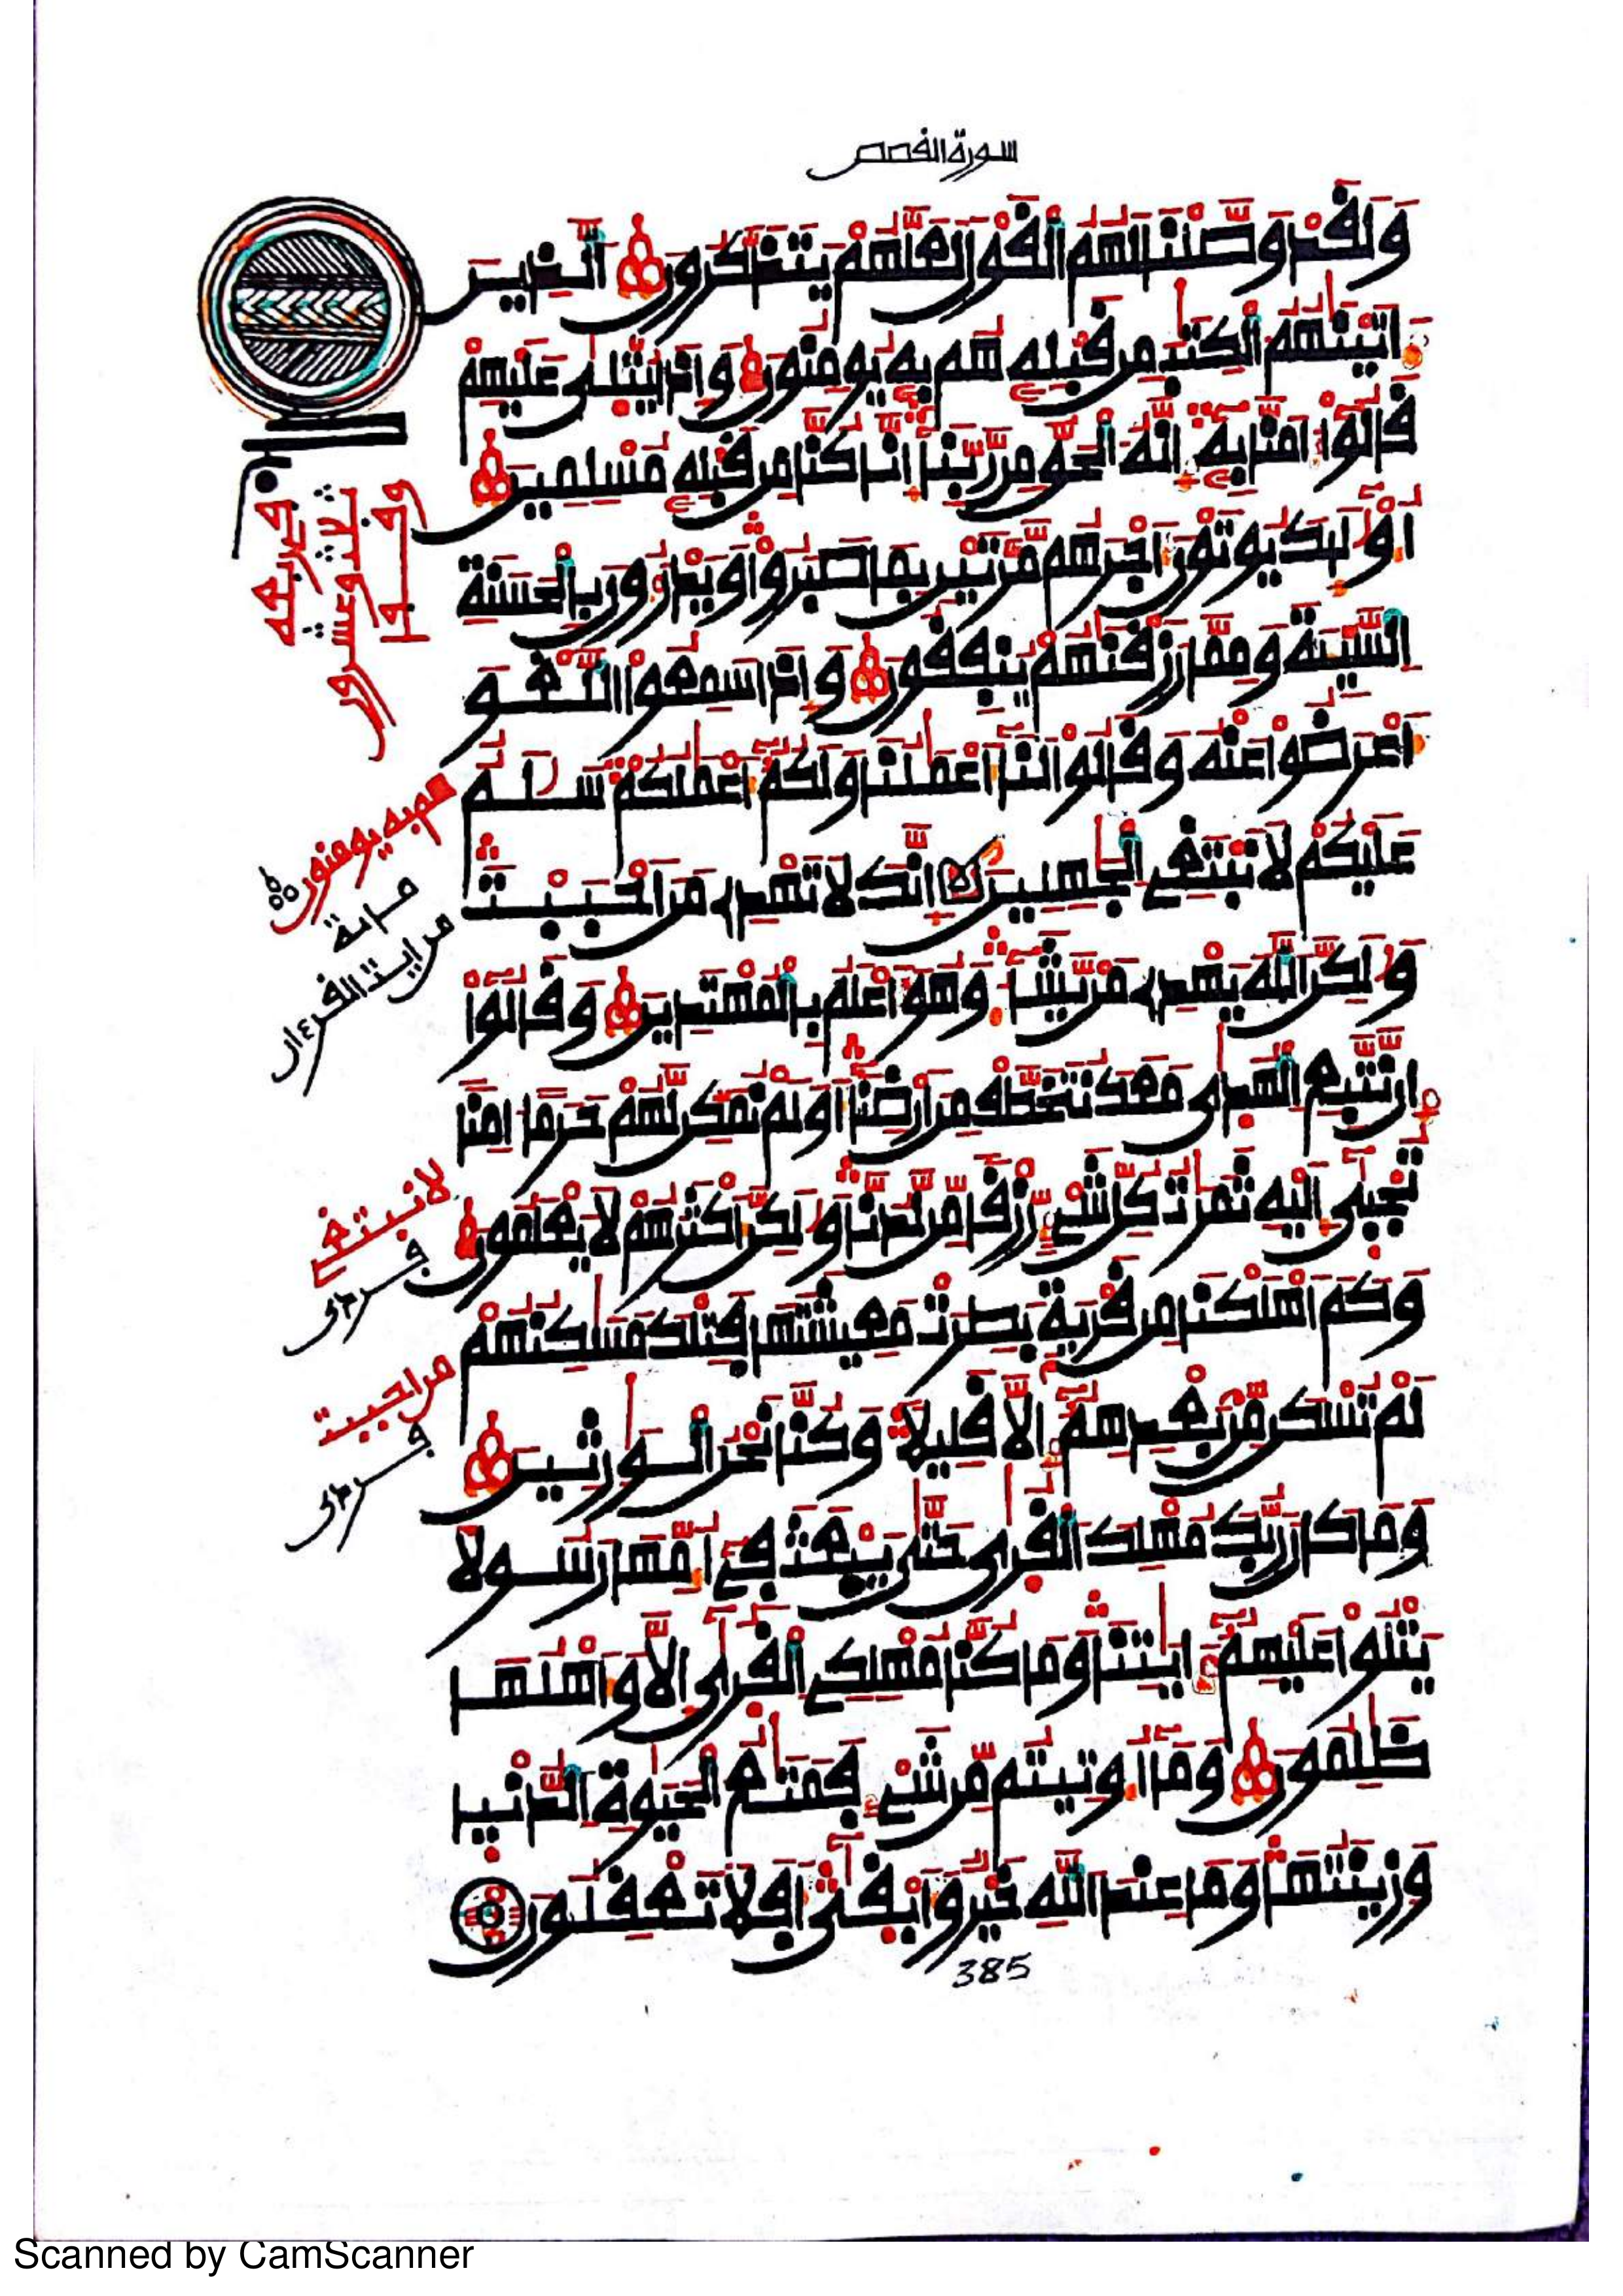 سورة القصص
وَلَقَدْ وَصَّلْنَا لَهُمُ الْقَوْلَ لَعَلَّهُمْ يَتَذَكَّرُونَ الَّذِينَ
ءَاتَيْنَٰهُمُ الْكِتَٰبَ مِن قَبْلِهِ هُم بِهِ يُومِنُونَ وَإِذَا يُتْلَىٰ عَلَيْهِمْ
قَالُوا ءَامَنَّا بِهِ إِنَّهُ الْحَقُّ مِن رَّبِّنَا إِنَّا كُنَّا مِن قَبْلِهِ مُسْلِمِينَ
أُوْلَٰئِكَ يُوتَوْنَ أَجْرَهُم مَّرَّتَيْنِ بِمَا صَبَرُوا وَيَدْرَءُونَ بِالْحَسَنَةِ
السَّيِّئَةَ وَمِمَّا رَزَقْنَٰهُمْ يُنفِقُونَ وَإِذَا سَمِعُوا اللَّغْوَ
أَعْرَضُوا عَنْهُ وَقَالُوا لَنَا أَعْمَٰلُنَا وَلَكُمْ أَعْمَٰلُكُمْ سَلَٰمٌ
عَلَيْكُمْ لَا نَبْتَغِي الْجَٰهِلِينَ إِنَّكَ لَا تَهْدِي مَنْ أَحْبَبْتَ
وَلَٰكِنَّ اللَّهَ يَهْدِي مَن يَّشَاءُ وَهُوَ أَعْلَمُ بِالْمُهْتَدِينَ وَقَالُوا
إِن نَّتَّبِعِ الْهُدَىٰ مَعَكَ نُتَخَطَّفْ مِنْ أَرْضِنَا أَوَلَمْ نُمَكِّن لَّهُمْ حَرَمًا ءَامِنًا
تُجْبَىٰ إِلَيْهِ ثَمَرَٰتُ كُلِّ شَيْءٍ رِّزْقًا مِّن لَّدُنَّا وَلَٰكِنَّ أَكْثَرَهُمْ لَا يَعْلَمُونَ
وَكَمْ أَهْلَكْنَا مِن قَرْيَةٍ بَطِرَتْ مَعِيشَتَهَا فَتِلْكَ مَسَٰكِنُهُمْ
لَمْ تُسْكَن مِّن بَعْدِهِمْ إِلَّا قَلِيلًا وَكُنَّا نَحْنُ الْوَٰرِثِينَ
وَمَا كَانَ رَبُّكَ مُهْلِكَ الْقُرَىٰ حَتَّىٰ يَبْعَثَ فِي أُمِّهَا رَسُولًا
يَتْلُوا عَلَيْهِمْ ءَايَٰتِنَا وَمَا كُنَّا مُهْلِكِي الْقُرَىٰ إِلَّا وَأَهْلُهَا
ظَٰلِمُونَ وَمَا أُوتِيتُم مِّن شَيْءٍ فَمَتَٰعُ الْحَيَوٰةِ الدُّنْيَا
وَزِينَتُهَا وَمَا عِندَ اللَّهِ خَيْرٌ وَأَبْقَىٰ أَفَلَا تَعْقِلُونَ
385
هم به يومنون
مراية
مراية القرءان
لا نبتغي
من احببت
Scanned by CamScanner